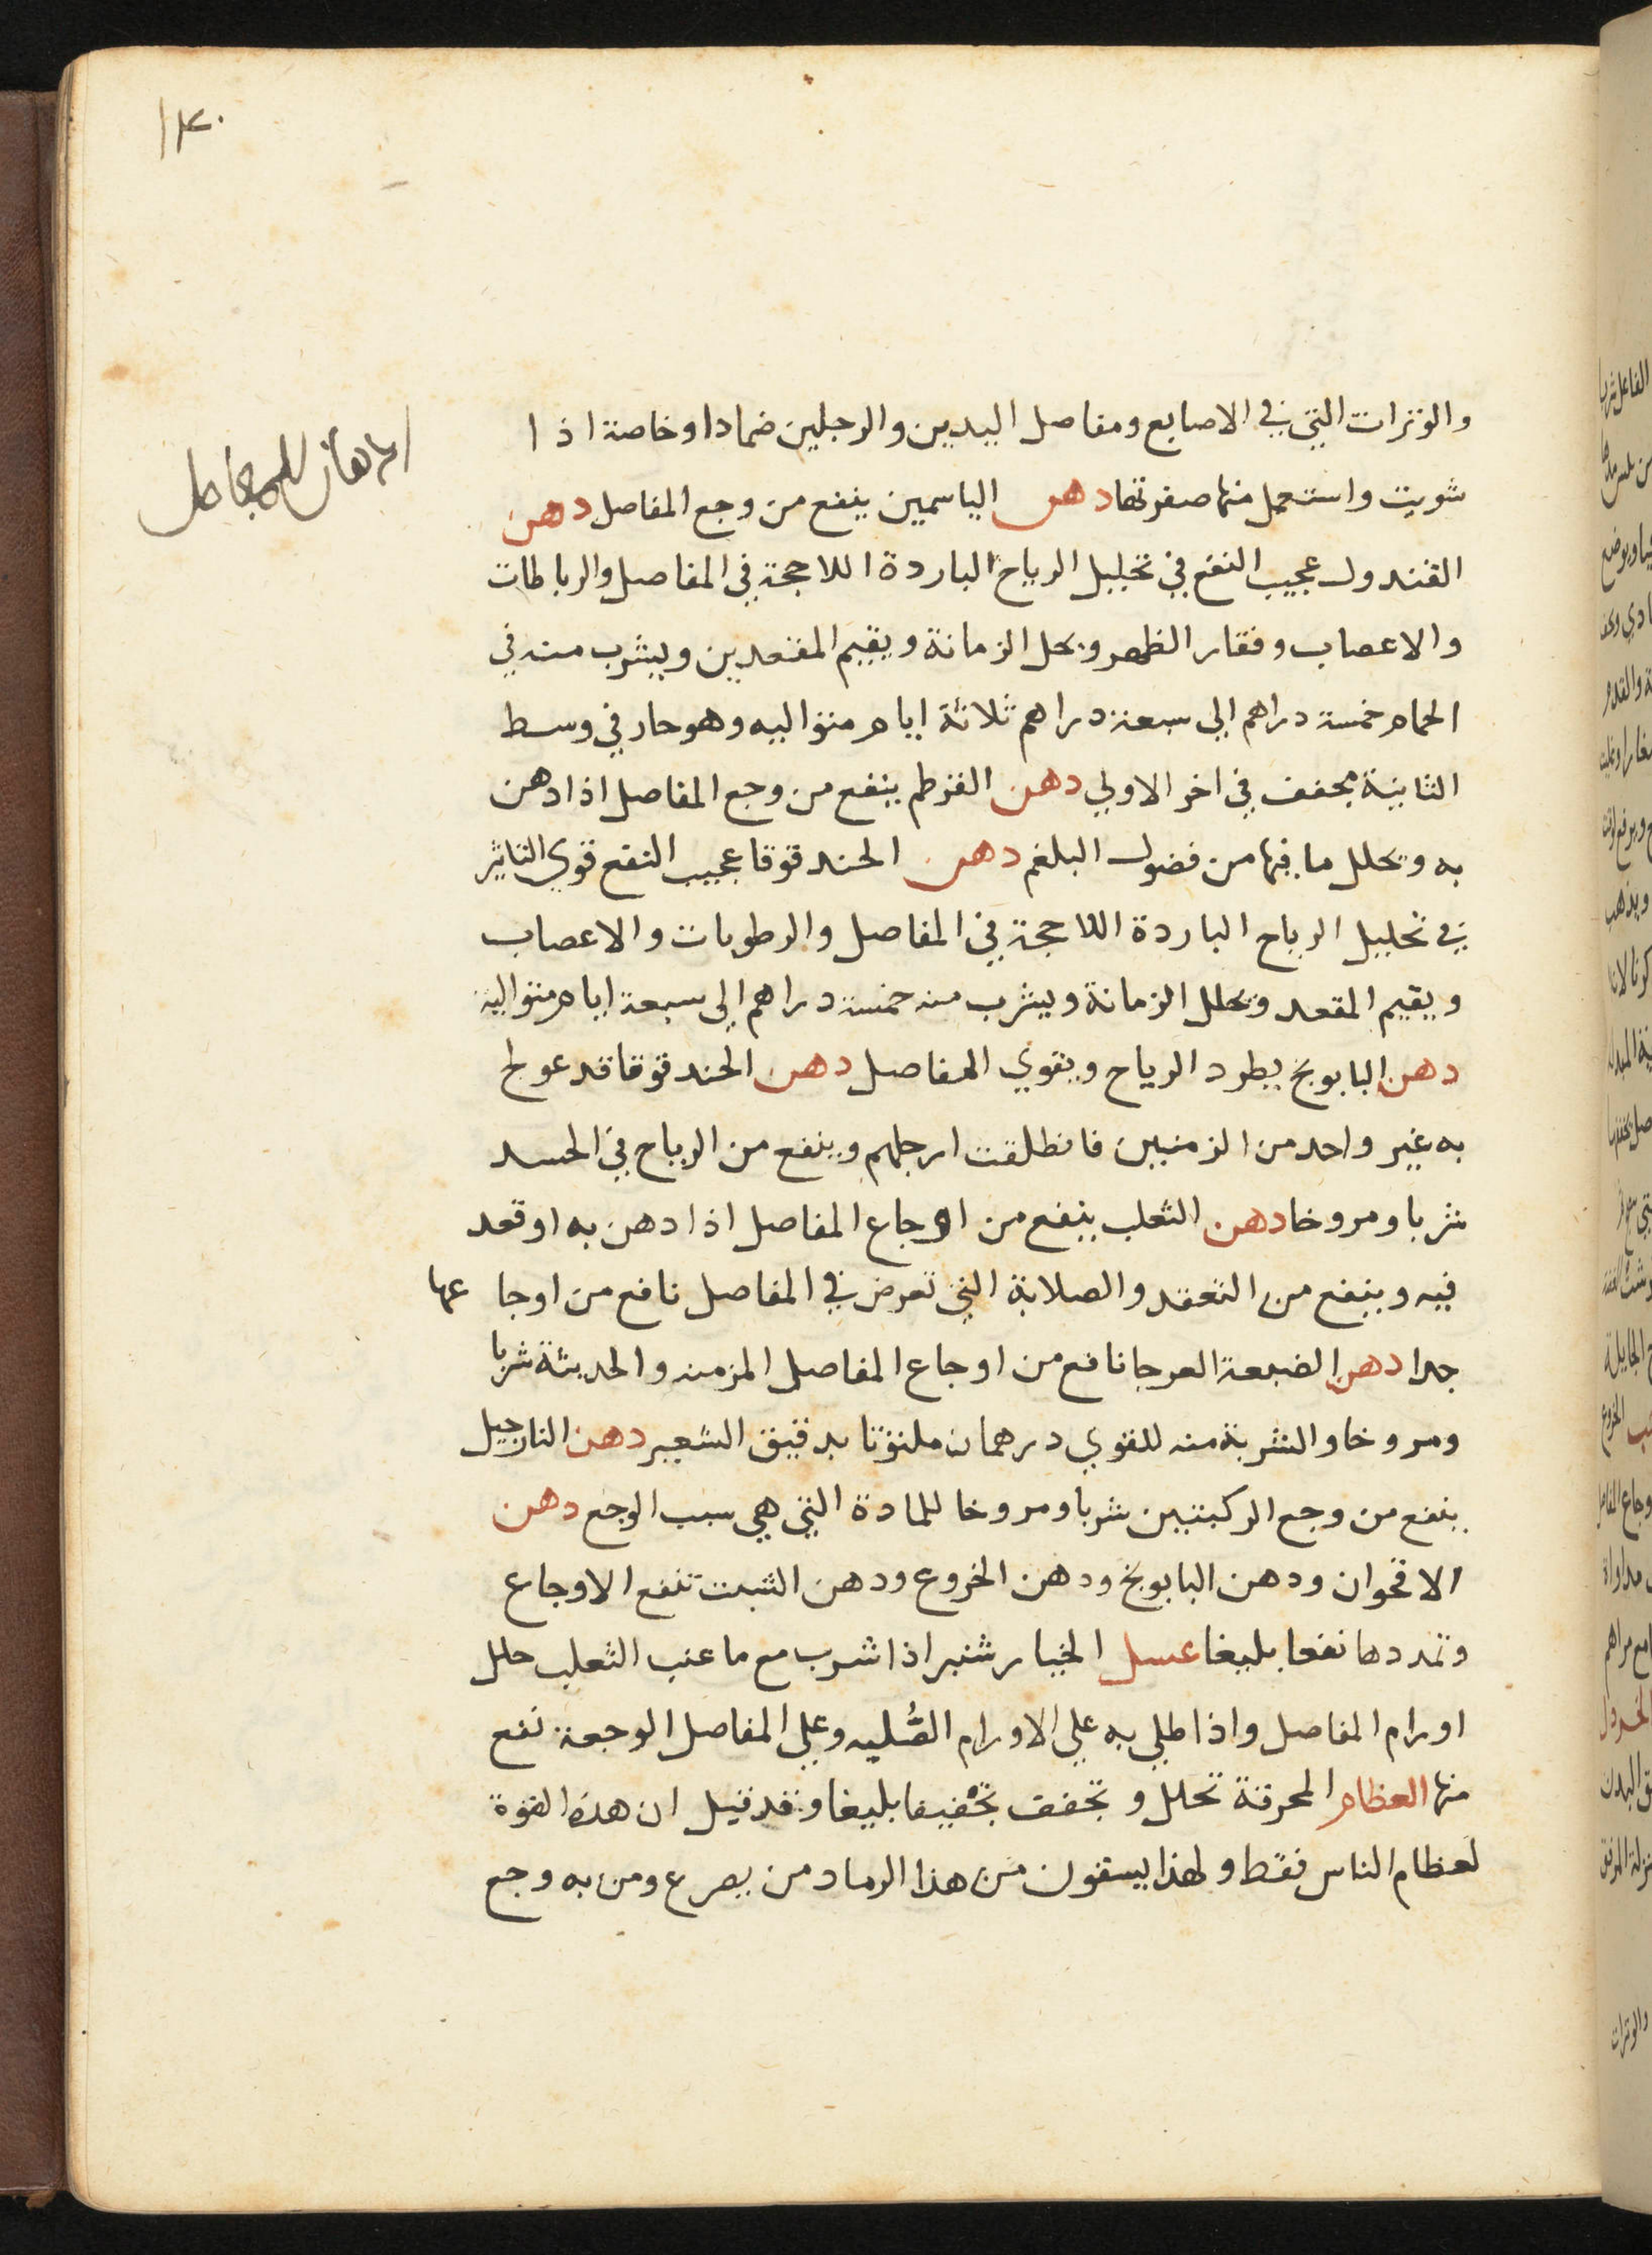 ١٣٠
والوترات التي في الاصابع ومفاصل اليدين والرجلين ضمادا وخاصة اذا
شويت واستعمل منها صفرتها دهن الياسمين ينفع من وجع المفاصل دهن
القندول عجيب النفع في تحليل الرياح الباردة اللاحجة في المفاصل والرباطات
والاعصاب وفقار الظهر ويحل الزمانة ويقيم المقعدين ويشرب منه في
الحمام خمسة دراهم الي سبعة دراهم ثلاثة ايام متواليه وهو حار في وسط
الثانية مجفف في اخر الاولي دهن القرطم ينفع من وجع المفاصل اذا دهن
به ويحلل ما فيها من فضول البلغم دهن الحندقوقا عجيب النفع قوي التاثير
في تحليل الرياح الباردة اللاحجة في المفاصل والرطوبات والاعصاب
ويقيم المقعد ويحلل الزمانة ويشرب منه خمسة دراهم الي سبعة ايام متوالية
دهن البابونج يطرد الرياح ويقوي المفاصل دهن الحندقوقا قد عولج
به غير واحد من الزمنين فانطلقت ارجلهم وينفع من الرياح في الجسد
شربا ومروخا دهن الثعلب ينفع من اوجاع المفاصل اذا دهن به او قعد
فيه وينفع من التعقد والصلابة التي تعرض في المفاصل نافع من اوجاعها
جدا دهن الضبعة العرجا نافع من اوجاع المفاصل المزمنه والحديثة شربا
ومروخا والشربة منه للقوي درهمان ملتوتا بدقيق الشعير دهن النارجيل
ينفع من وجع الركبتين شربا ومروخا للمادة التي هي سبب الوجع دهن
الاقحوان ودهن البابونج ودهن الخروع ودهن الشبت تنفع الاوجاع
وتمددها نفعا بليغا عسل الخيار شنبر اذا شرب مع ما عنب الثعلب حلل
اورام المفاصل واذا طلي به علي الاورام الصُلبه وعلي المفاصل الوجعة نفع
منها العظام المحرقة تحلل وتجفف تجفيفا بليغا وقد قيل ان هذه القوة
لعظام الناس فقط ولهذا يسقون من هذا الرماد من يصرع ومن به وجع